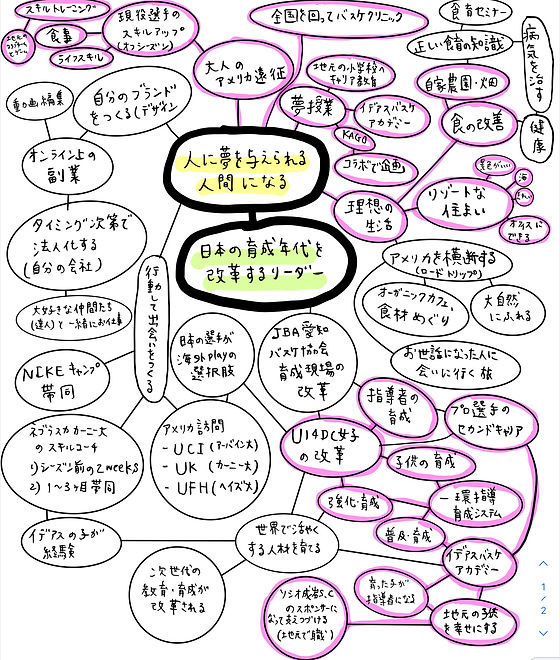 スキルトレーニング
現役選手の
スキルアップ
(オフシーズン)
食事
ライフスキル
全国を回ってバスケクリニック
食育セミナー
正しい食育の知識
病気を治す
大人の
アメリカ遠征
地元の小学校へ
キャリア教育
自家農園・畑
動画編集
自分のブランド
をつくる(デザイン)
夢授業
イデアスバスケ
アカデミー
食の改善
健康
KAGO
コラボで企画
オンライン上の
副業
人に夢を与えられる
人間になる
景色がいい
海
リゾートな
住まい
理想の
生活
オフィスに
できる
タイミング次第で
法人化する
(自分の会社)
日本の育成年代を
改革するリーダー
アメリカを横断する
(ロードトリップ)
行動して出会いをつくる
オーガニックカフェ
食材めぐり
大自然
にふれる
大好きな仲間たち
(達人)と一緒にお仕事
日本の選手が
海外playの
選択肢
JBA愛知
バスケ協会
育成現場の
改革
お世話になった人に
会いに行く旅
NIKEキャンプ
帯同
指導者の
育成
プロ選手の
セカンドキャリア
ネブラスカカーニー大
のスキルコーチ
1)シーズン前の2weeks
2) 1〜3ヶ月帯同
アメリカ訪問
- UCI(アーバイン大)
- UK (カーニー大)
- UFH(ヘイズ大)
U14DC女子
の改革
子供の育成
強化・育成
一環指導
育成システム
普及・育成
イデアスの子が
経験
世界で活やく
する人材を育てる
イデアスバスケ
アカデミー
次世代の
教育・育成が
改革される
育った子が
指導者になる
ソシオ成岩S.C
のスポンサーに
なって支えつづける
(地元で職)
地元の子供
を幸せにする
1
2